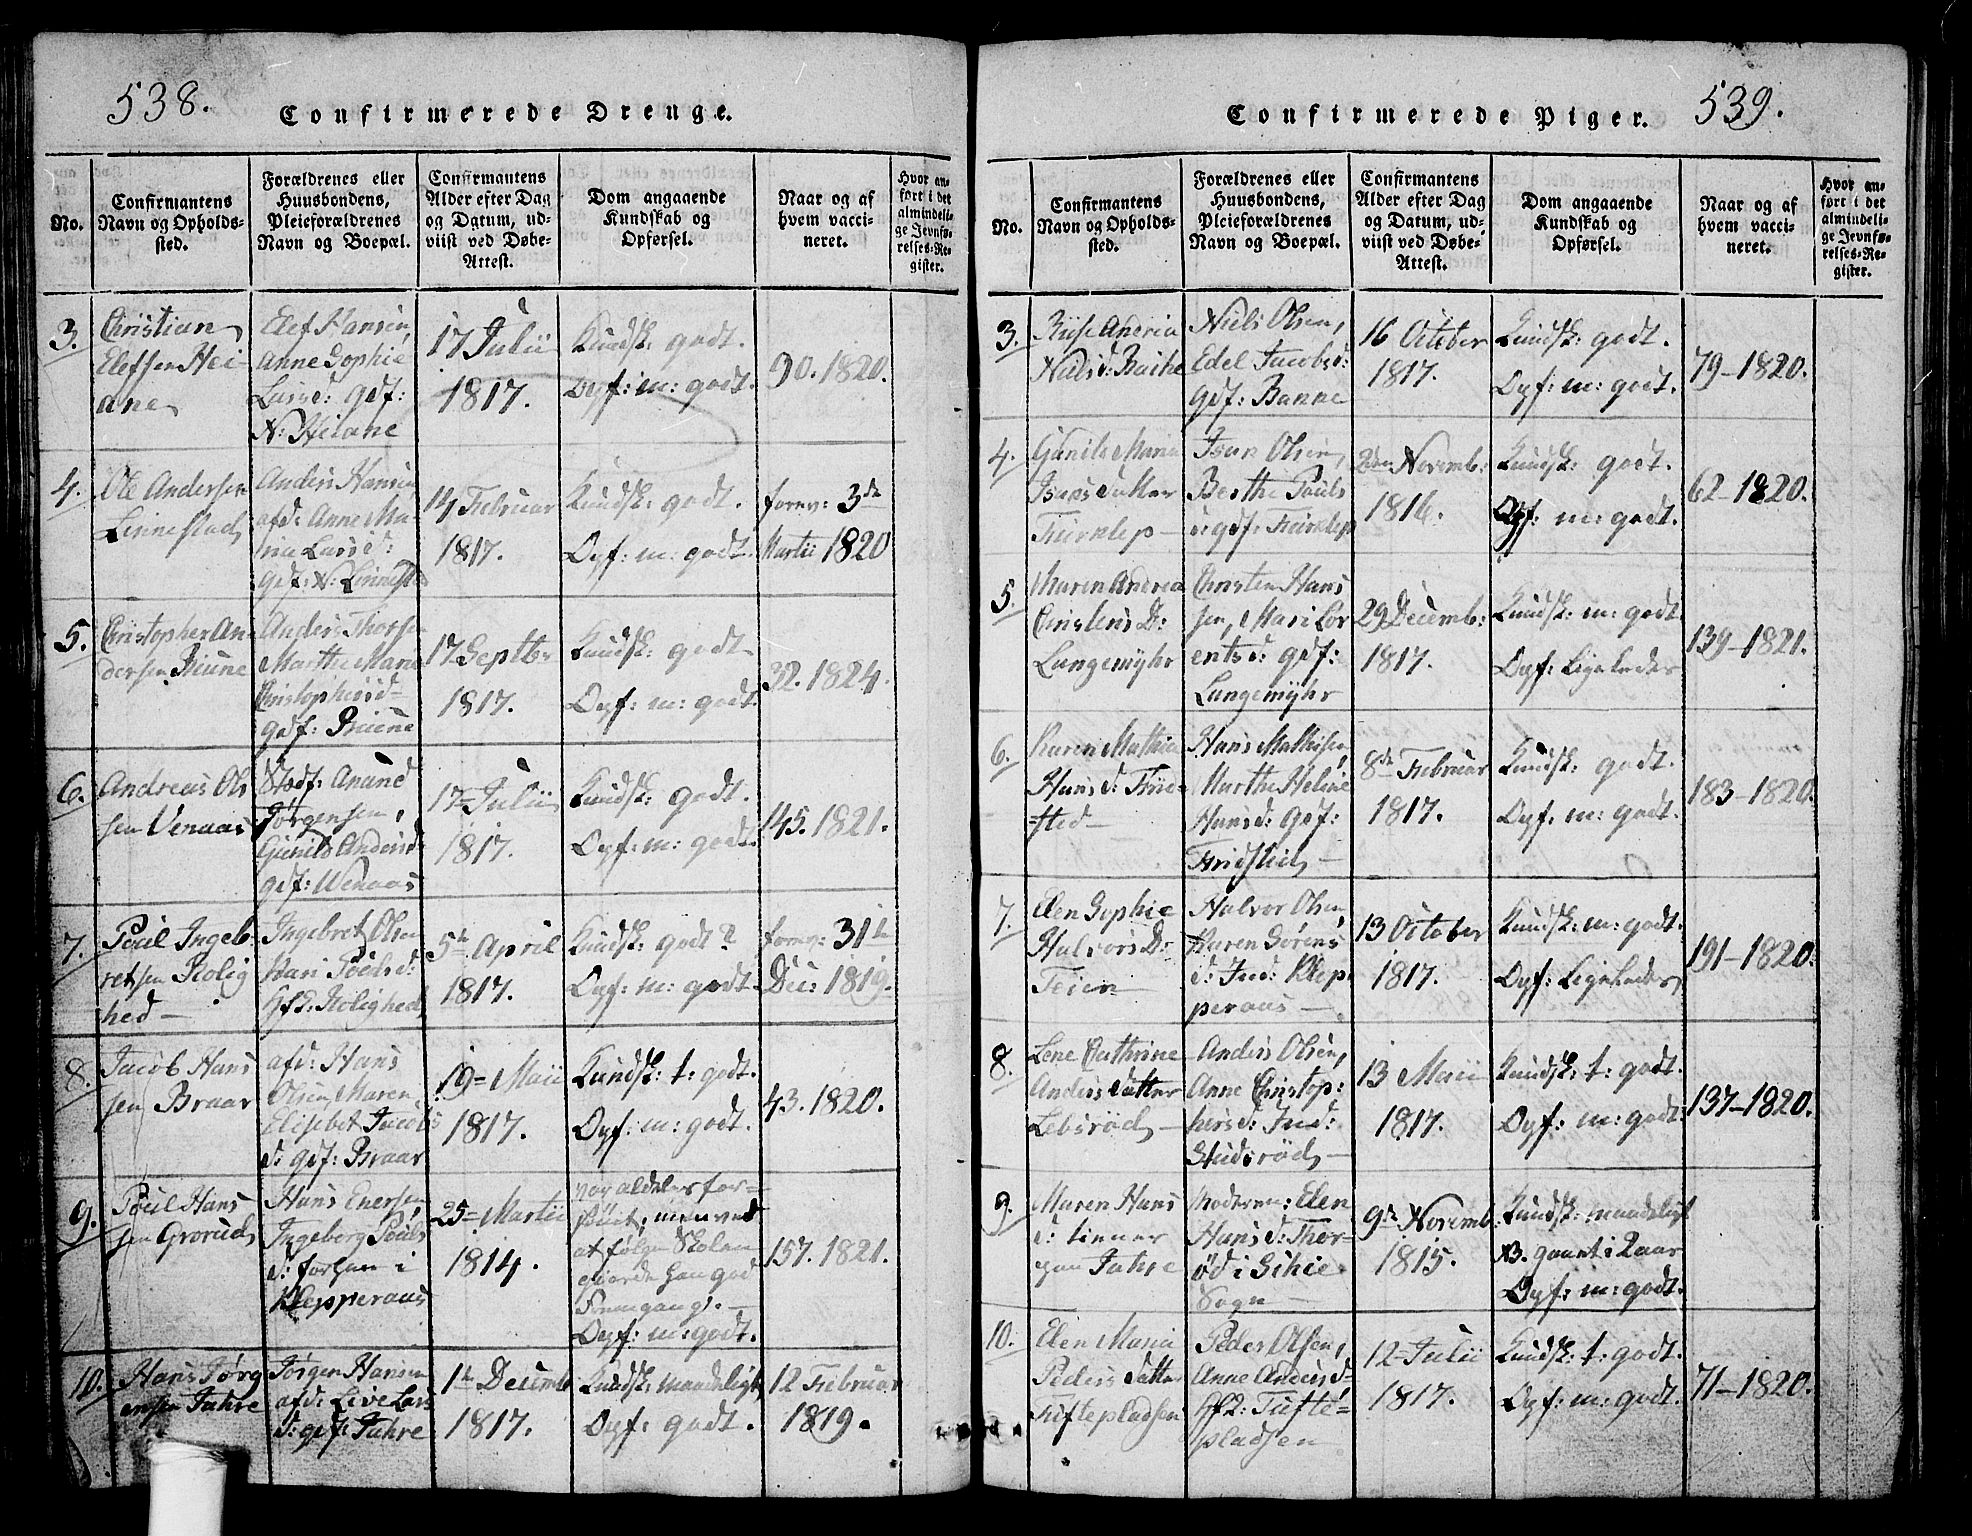 538.
Confirmerede Drenge.
No.
Confirmantens
Navn og Opholds-
sted.
Forældrenes eller
Huusbondens,
Pleieforældrenes
Navn og Boepæl.
Confirmantens
Alder efter Dag
og Datum, ud-
viist ved Døbe-
Attest.
Dom angaaende
Kundskab og
Opførsel.
Naar og af
hvem vacci-
neret.
Hvor an-
ført i det
almindeli-
ge Jevnfø-
relses-Re-
gister.
3.
Christian
Elefsen Hei
ane
Elef Hansen,
Anne Sophie
Larsd: gdf:
N: Heiane
17 Julii
1817.
Kundsk: godt.
Opf: m: godt.
90. 1820.
4.
Ole Andersen
Linnestad
Anders Hansen
afd: Anne Ma-
ria Larsd:
gdf: N: Linnest
14 Februar
1817.
Kundsk: godt.
Opf: m: godt.
3de
Martii 1820
5.
Christopher An-
dersen Bruune
Anders Thorse
Marthe Marie
Christophersd-
gdf: Bruune
17 Septbr
1817.
Kundsk: godt
Opf: m: godt.
32. 1824.
6.
Andreas Ols
sen Venaas
Stedf: Anund
Jørgensen,
Gunild Andersd:
gdf: Wenaas
17 Julii
1817.
Kundsk: godt.
Opf: m: godt.
145. 1821.
7.
Poul Ingeb
retsen Rolig
hed
Ingebret Olsen
Kari Poulsd:
Hfd: Rolighed
5te April
1817.
Kundsk: godt?
Opf: m: godt
31te
Dec: 1819.
8.
Jacob Hans
sen Braar
afd: Hans
Olsen, Maren
Elisebet Jacobs
d: gdf: Braar
19 Maii
1817.
Kundsk: t: godt.
Opf: m: godt.
43. 1820.
9.
Poul Hans
sen Grorud
Hans Enersen,
Ingeborg Pouls
d: forhen i
Klepperaas
25 Martii
1814.
var aldeles for-
sømt, men ved
at følge Skolen
gjorde han god
Fremgang. -
Opf: m: godt.
157. 1821.
10.
Hans Jørg
ensen Fahre
Jørgen Hansen
afd: Live Lars
d: gdf: Fahre
1te Decemb
1817.
Kundsk: maadeligt,
Opf: godt.
12 Februar
1819.
539.
Confirmerede Piger.
No.
Confirmantens
Navn og Opholds-
sted.
Forældrenes eller
Huusbondens,
Pleieforældrenes
Navn og Boepæl.
Confirmantens
Alder efter Dag
og Datum, ud-
viist ved Døbe-
Attest.
Dom angaaende
Kundskab og
Opførsel.
Naar og af
hvem vacci-
neret.
Hvor an-
ført i det
almindeli-
ge Jevnfø-
relses-Re-
gister.
3.
Andrea
Nielsd:
Niels Olsen,
Edel Jacobsd:
gdf: Banne
16 October
1817.
Kundsk: godt.
Opf: m: godt.
79-1820.
4.
Gunild Maria
Isaks Datter
Isak Olsen,
Berthe Pouls
d: gdf:
2den Novemb:
1816.
Kundsk: godt.
Opf: m: godt.
62-1820.
5.
Maren Andrea
Christens D:
Langemyhr
Christen Hans
sen, Mari Lor
entsd: gdf:
Langemyhr
29 Decemb:
1817.
Kundsk: m: godt
Opf: Ligeledes
139-1821.
6.
Karen Mathia
Hans d: Frie-
sted-
Hans Mathisen,
Marthe Heline
Hansd: gdf:
Fridsted
8de Februar
1817.
Kundsk: godt.
Opf: m: godt.
183-1820.
7.
Elen Sophie
Halvors D:
Feien
Halvor Olsen,
Karen Sørens
d: Ind: Klep-
peraas -
13 October
1817.
Kundsk: m: godt.
Opf: Ligeledes
191-1820.
8.
Lene Cathrine
Anders Datter
Lebsrød -
Anders Olsen,
Anne Christop:
hersd: Ind:
Studsrød -
13 Maii
1817.
Kundsk: t: godt.
Opf: m: godt.
137-1820.
9.
Maren Hans
d: tienner
paa Fahre
Moderen: Elen
Hans d: Thor-
ød i
Sogn -
9de Novemb:
1815.
Kundsk: maadeligt
NB. gaaet i 2 aar
Opf: m: godt.
10.
Elen Maria
Peders Datter
Tuftepladsen
Peder Olsen,
Anne Andersd-
Hfd: Tufte-
pladsen
12 Julii
1817.
Kundsk: t: godt.
Opf: m: godt.
71-1820.